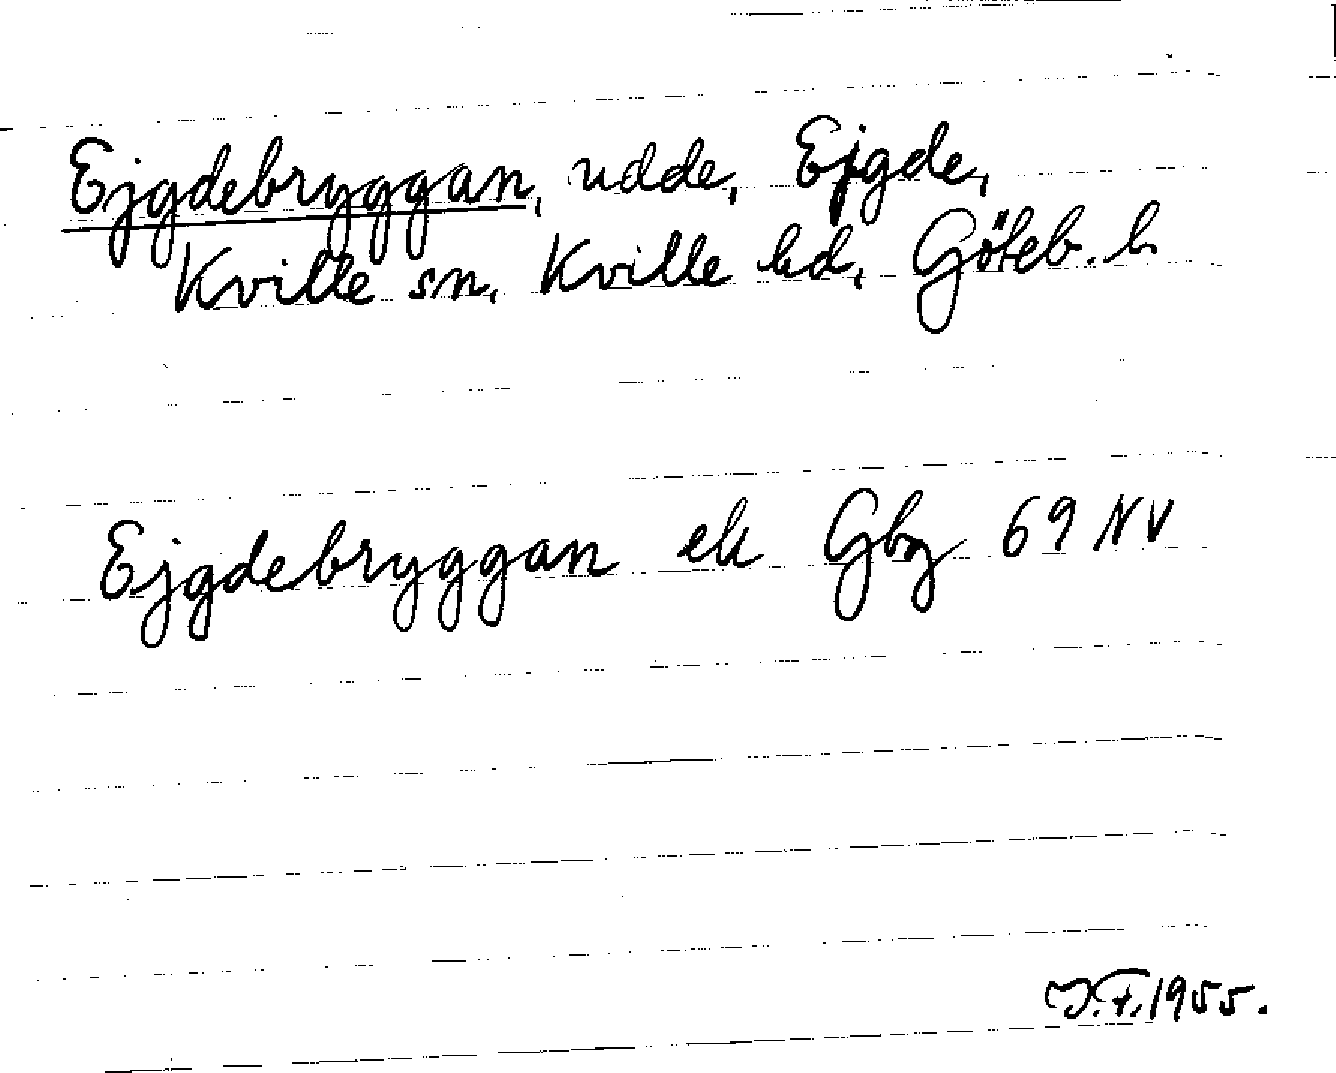 Ejgdebryggan, udde, Ejgde,
Kville sn, Kville hd, Göteb. l.
Ejgdebryggan ek Gbg 69 NV
J.F. 1955.